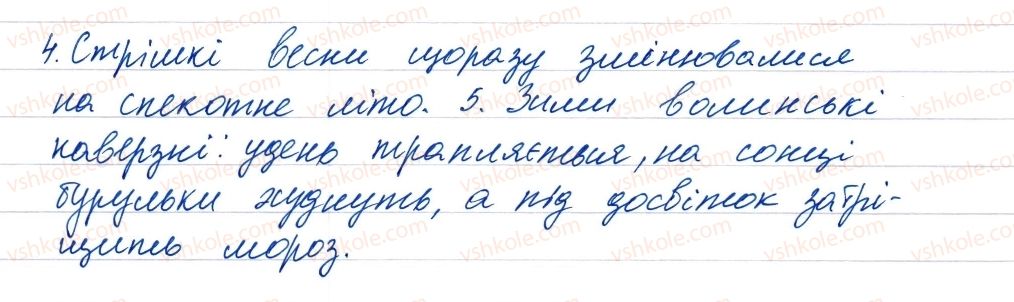 4. Стрімкі весни щоразу змінювалися
на спекотне літо. 5. Зими волинські
каверзні: удень трапляється, на сонці
бурульки худнуть, а під досвіток затрі-
щить мороз.